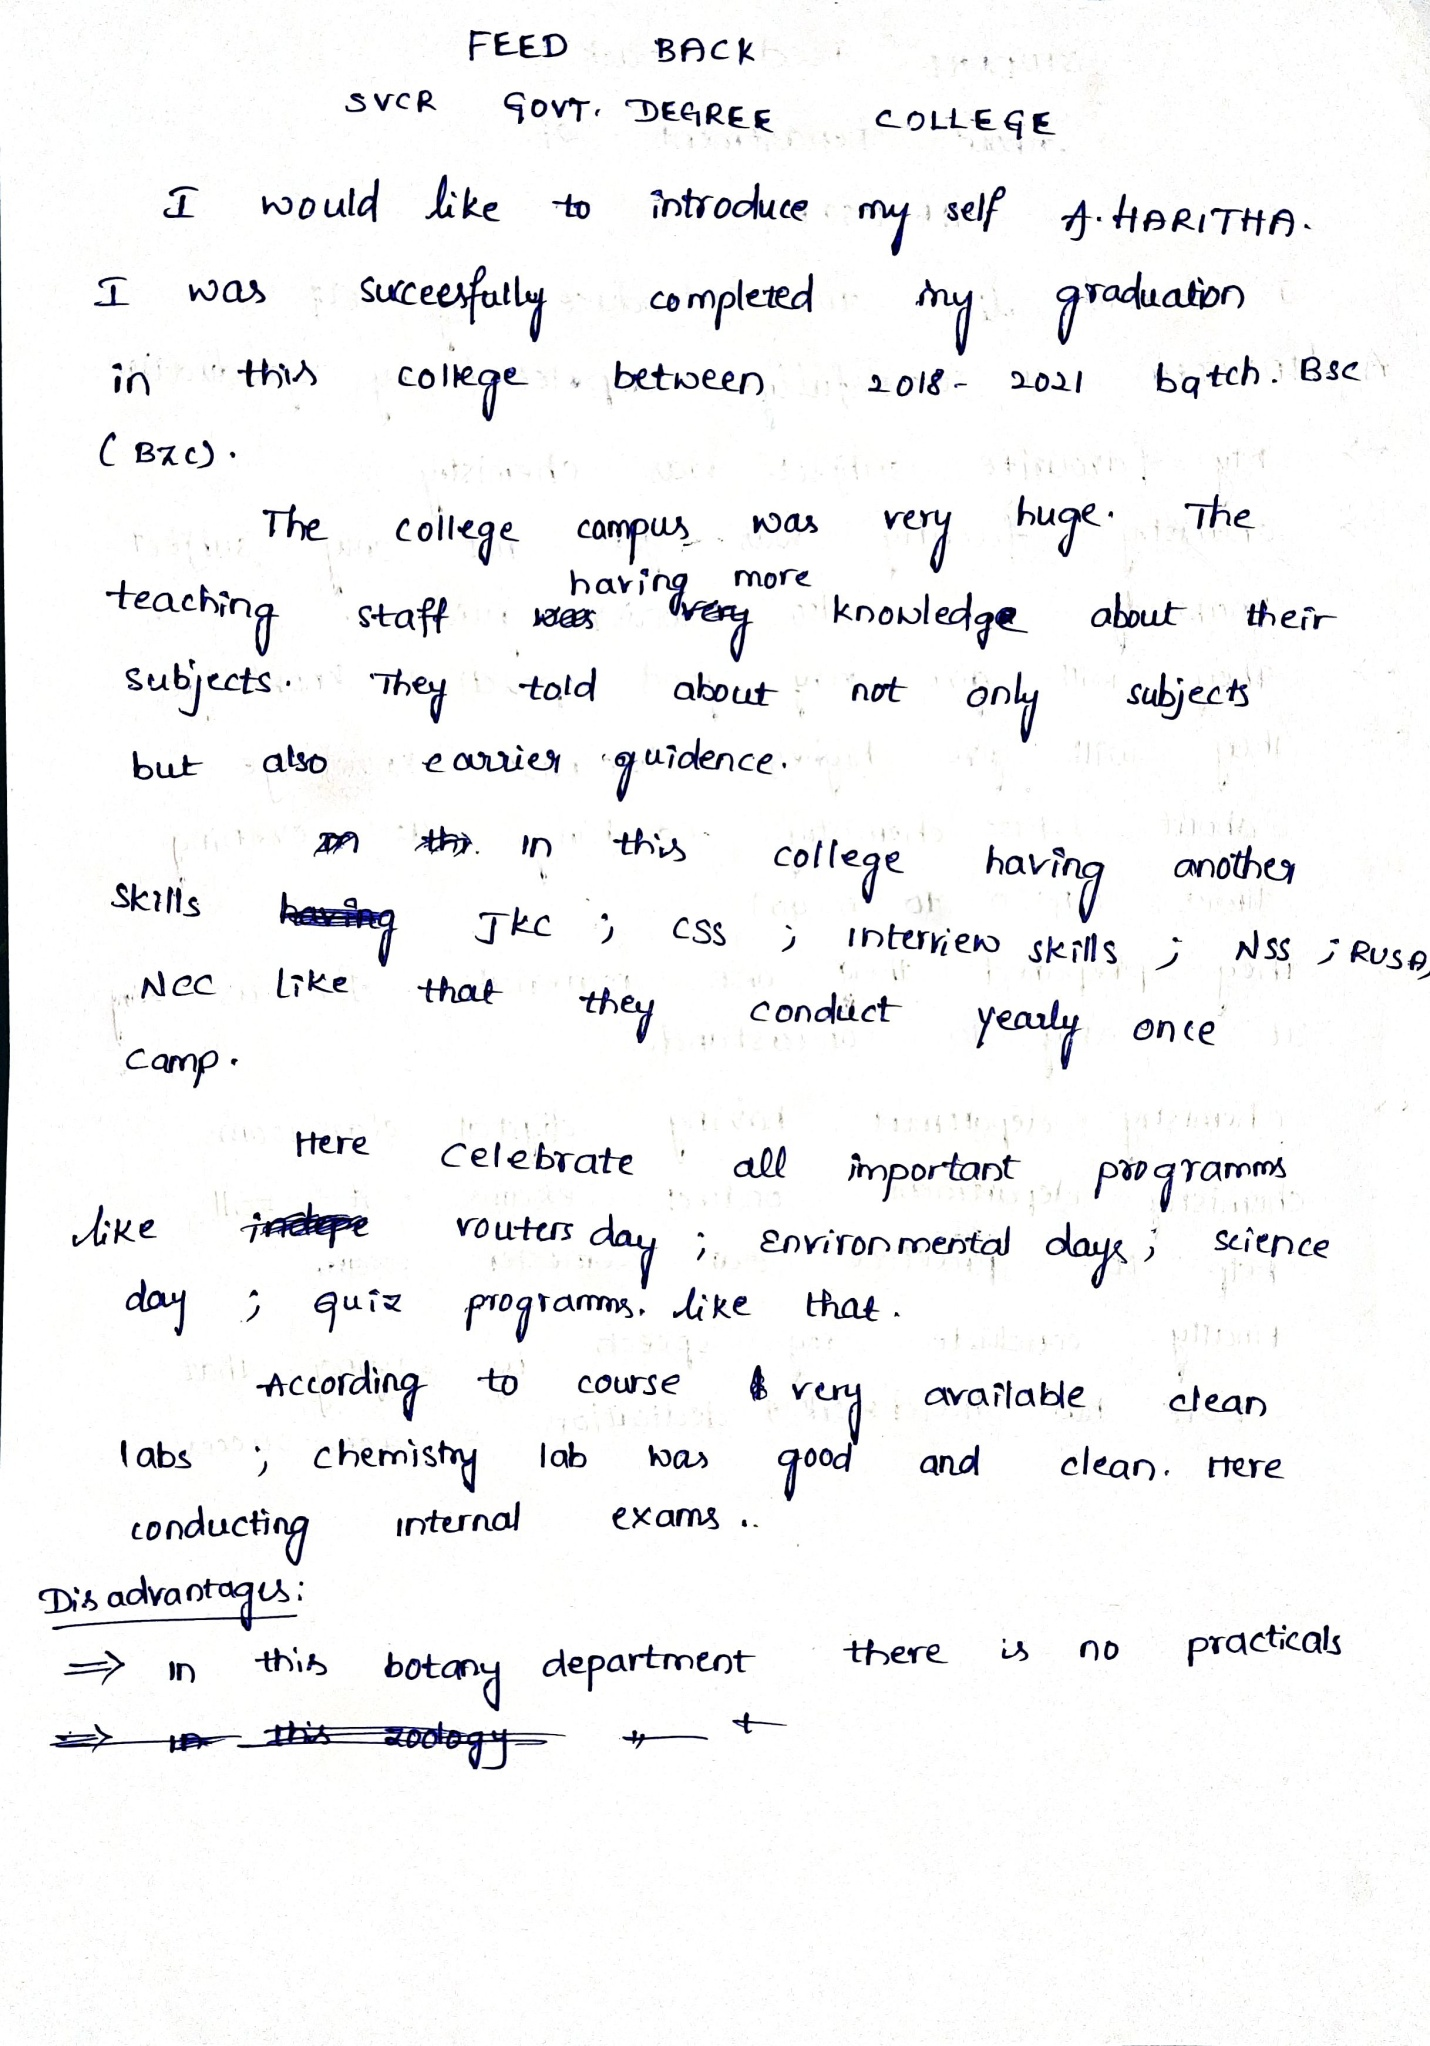 FEED BACK
SVCR GOVT. DEGREE COLLEGE
I would like to introduce my self A. HARITHA.
I was succeesfully completed my graduation
in this college between 2018 - 2021 batch. BSC
(BZC).
The college campus was very huge. The
having more
teaching staff very knowledge about their
subjects. They told about not only subjects
but also carrier guidence.
in this college having another
skills JKC ; CSS ; interview skills ; NSS ; RUSA,
NCC like that they conduct yearly once
camp.
Here celebrate all important programms
like routers day ; Environmental days ; science
day ; quiz programms. like that.
According to course very available clean
labs ; chemistry lab was good and clean. Here
conducting internal exams ..
Disadvantages:
⇒ in this botany department there is no practicals